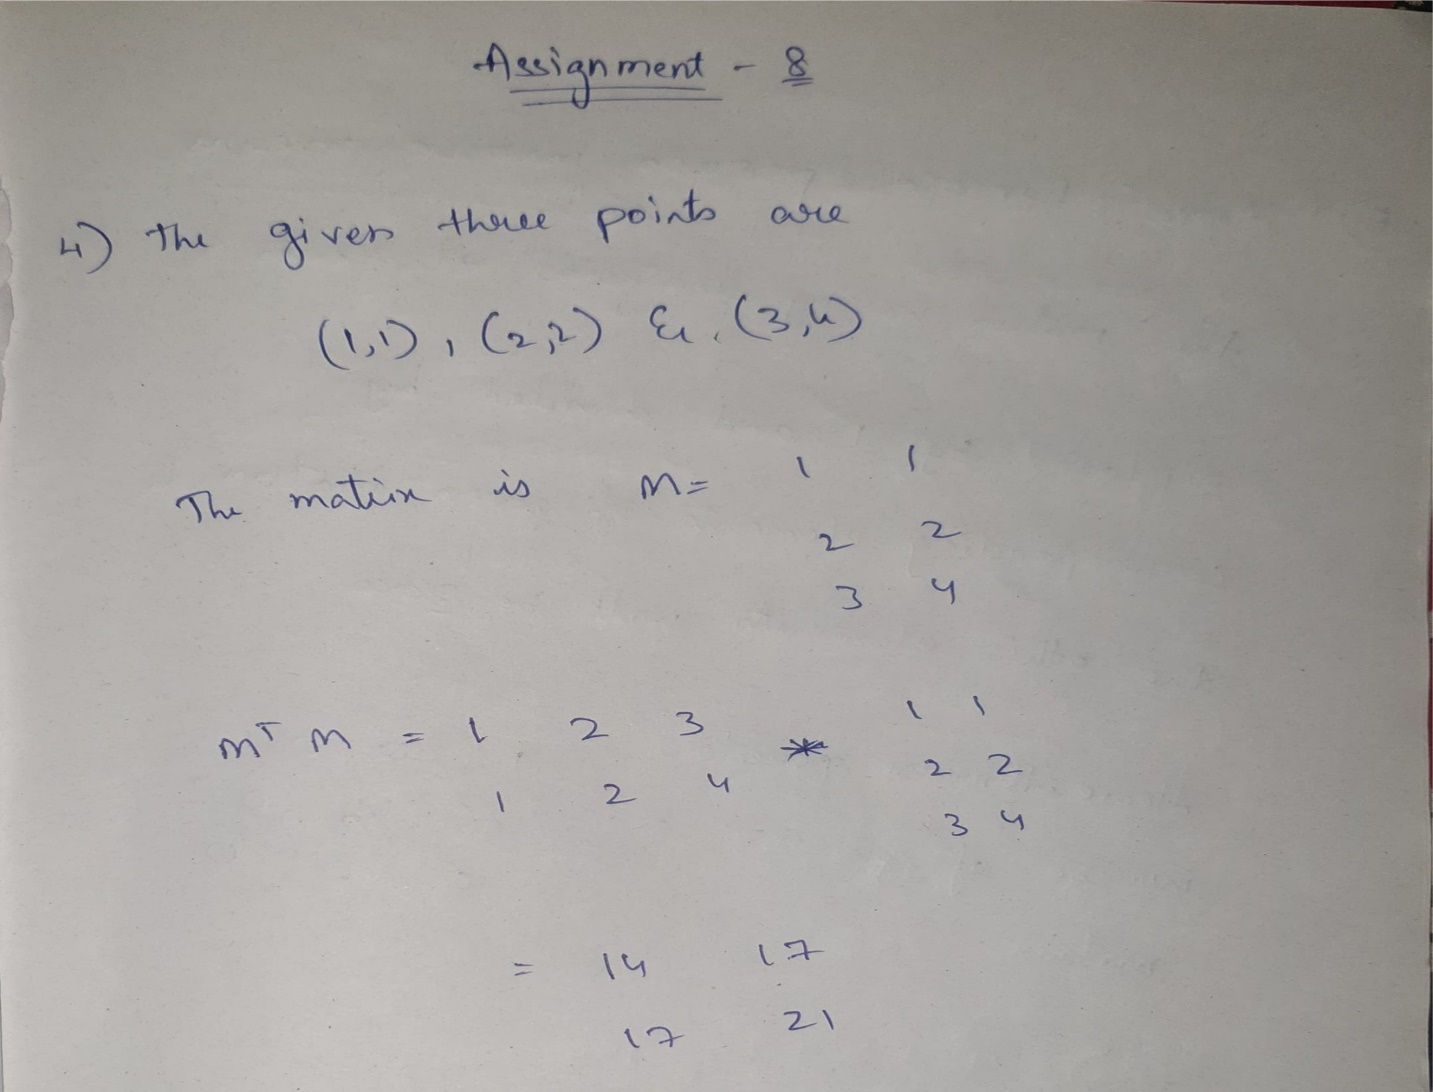 Assignment - 8
4) The given three points are
(1,1), (2,2) & (3,4)
The matrix is M= 1 1
2 2
3 4
MT M = 1 2 3 * 1 1
1 2 4 2 2
3 4
= 14 17
17 21